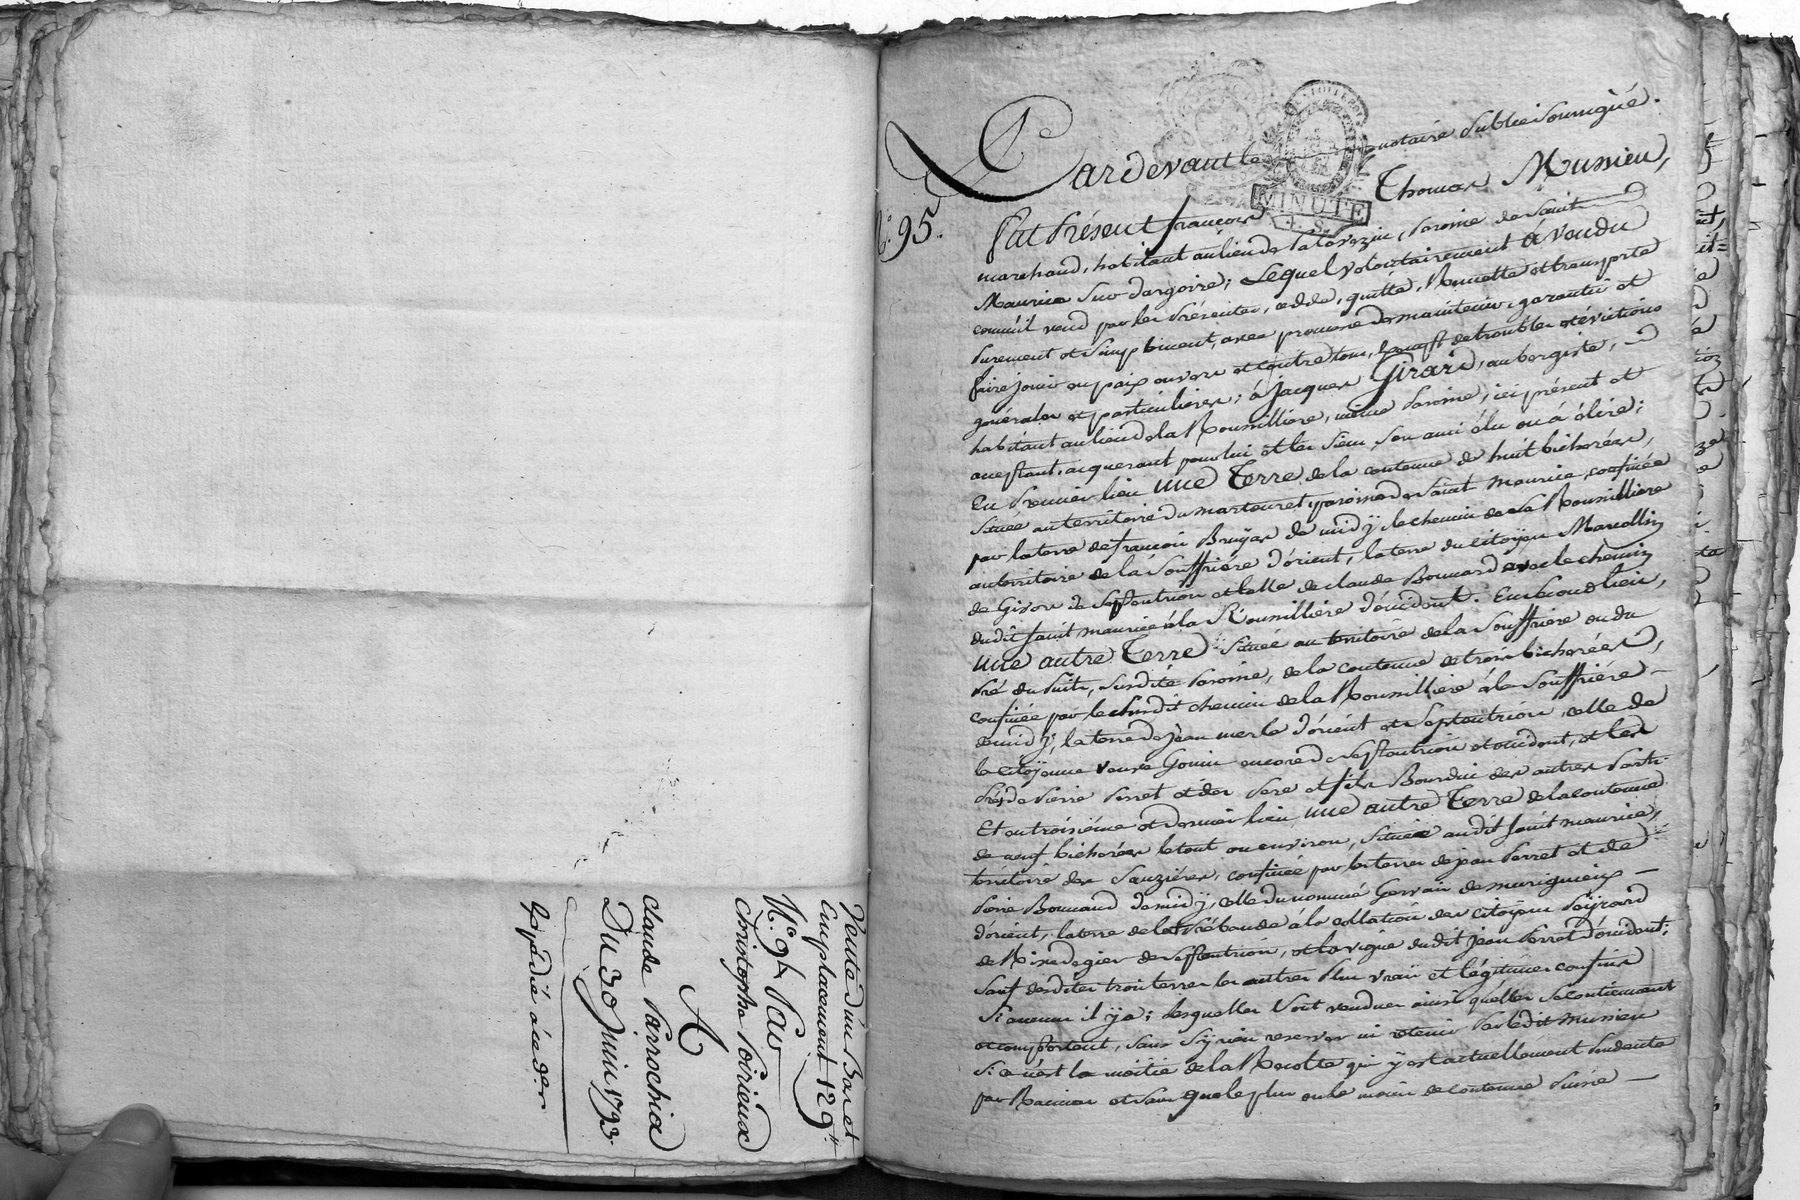 Vente d'un Banc et
Emplacement 129 ᵗᵗ
N.º 94 Par
christophe Poirieux
A
claude Parrochia
Du 30 Juin 1793
Expédié à ce der
Pardevant le notaire Public soussigné.
MINUTE
4. S.
N.º 95.
Fut Présent françois Thomas Mussieu,
marchand, habitant au lieu de , Paroisse de Saint
Maurice Sur dargoire; Lequel volontairement a vendu
comm'il vend par les Présentes, cedde, quitte, Remette et transporte
Purement et Simplement, avec promesse de maintenir, garantir et
faire jouir en paix envers et contre tous, de troubles et évictions
générales et particulieres; à Jacques Girard, aubergiste,
habitant au lieu de la Roussilliere, même Paroisse, ici présent et
acceptant, acquerant pour lui et les siens son ami élu ou à élire;
En Premier lieu une Terre de la contenue de huit bicherées,
Située au territoire du martouret, paroisse de Saint Maurice, confinée
par la terre de françois Bruyas de midÿ, le chemin de la Roussilliere
au territoire de la Souffrière d'orient, la terre du citoÿen Marcellin
de Gison de Septentrion et celle de claude Bonnard avec le chemin
dudit Saint maurice à la Roussilliere d'occident. En second lieu,
une autre Terre Située au territoire de la Souffriere ou du
Pré du Puits, Susdite Paroisse, de la contenue de trois bicherées,
confinée par le Susdit chemin de la Roussilliere à la Souffriére
de midÿ, la terre de Jean merle d'orient et Septentrion, celle de
la citoÿenne veuve Gonin encore de Septentrion et occident, et les
Prés de Pierre Perret et des Pere et fils Bourdin des autres Parti.
Et en troisiéme et dernier lieu une autre Terre de la contenue
de neuf bicherées le tout ou environ, Située audit Saint maurice,
territoire des Sauziéres, confinée par les terres de jean Perret et de
Pierre Bonnand de midÿ, celle du nommé Gervais de murigneux
d'orient, la terre de la Prébende à la collation des citoÿens Peÿrard
de Rivedegier de Septentrion, et la vigne dudit jean Perret d'occident;
Sauf desdites trois terres les autres Plus vrais et légitimes confins
Si aucuns il ÿ a; lesquelles Sont vendues ainsi quelles Se contiennent
et comportent, Sans S'ÿ rien reserver ni retenir Par ledit mussieu
Si ce n'est la moitié de la Recolte qui ÿ est actuellement Pendente
par Racines et Sans que le plus ou le moins de contenue Puisse